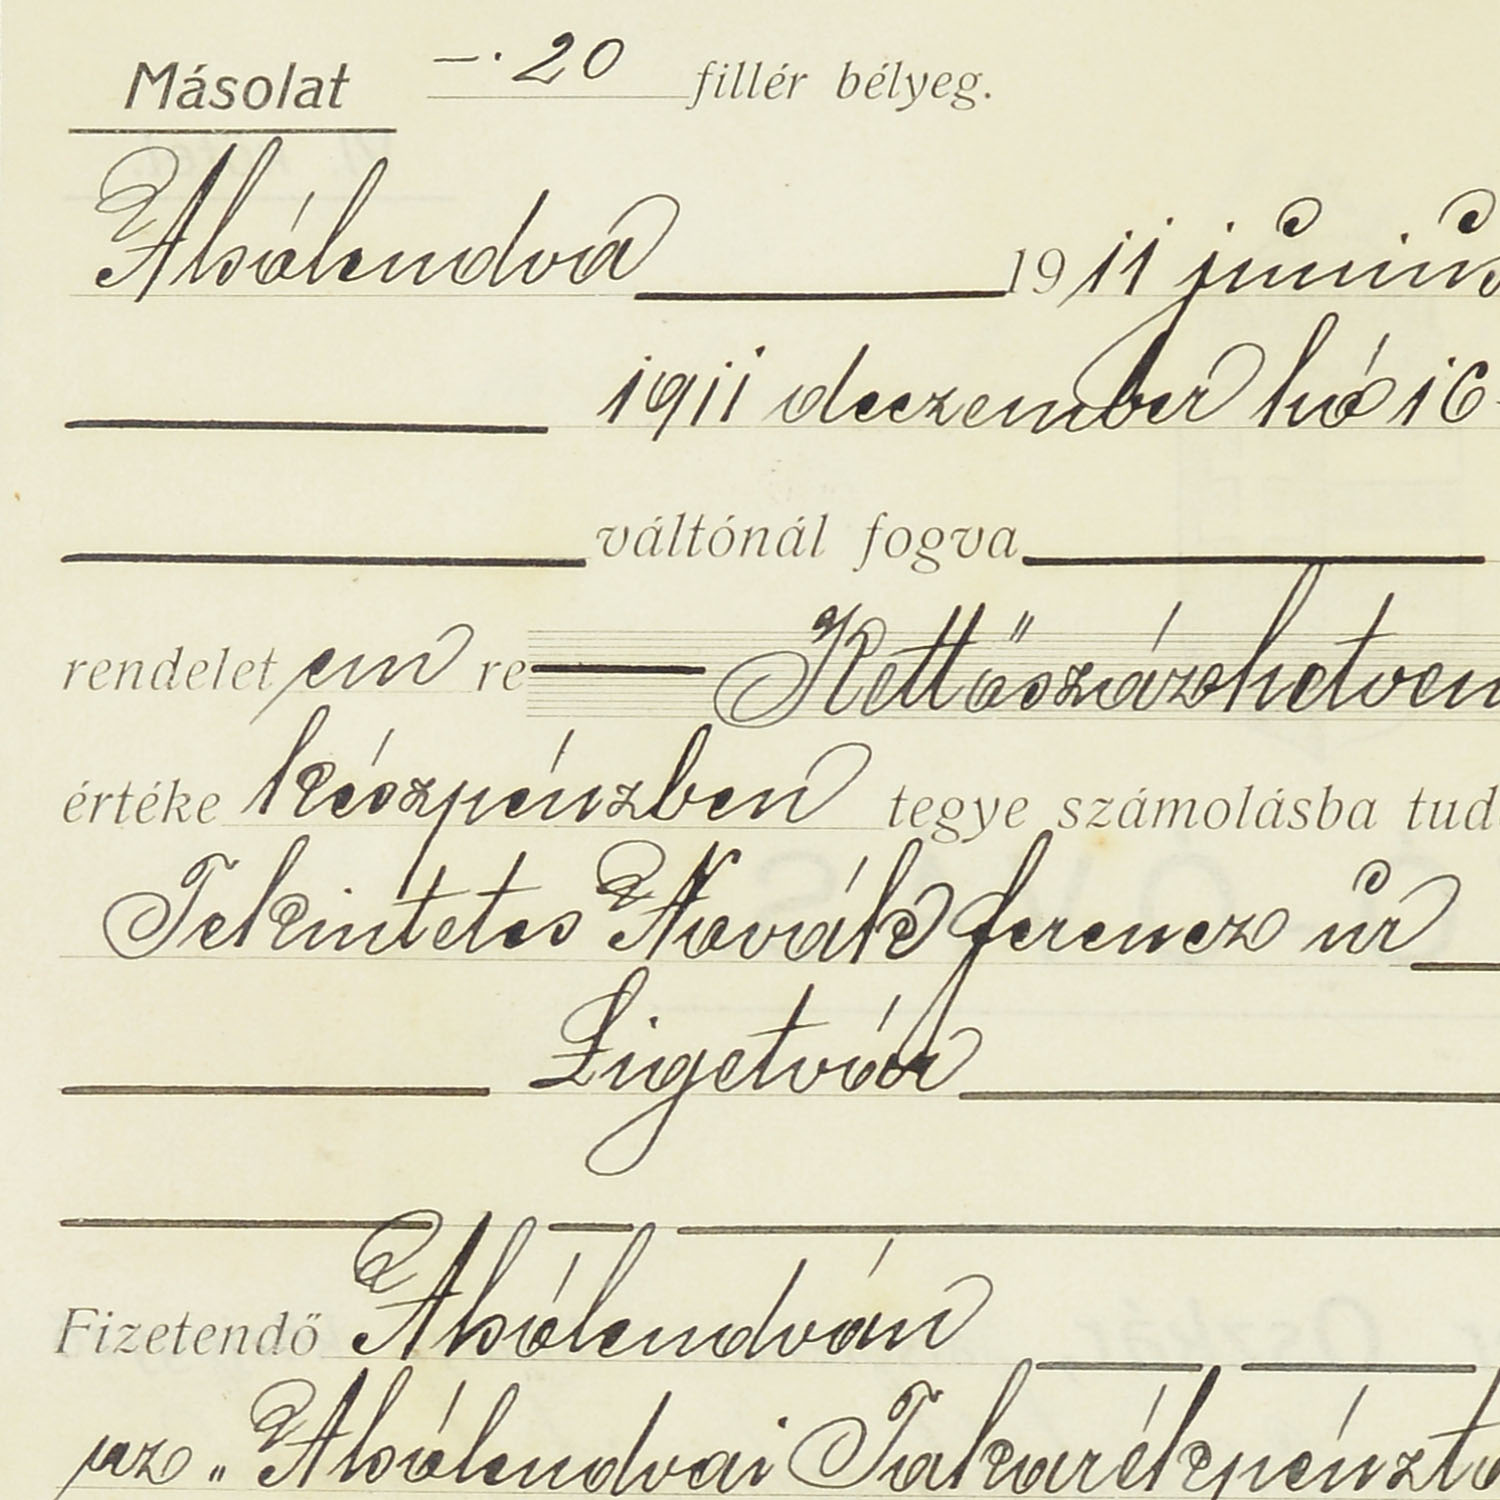 Másolat —·20 fillér bélyeg.
Alsólendva 1911 június
1911 deczember hó 16-
váltónál fogva
rendelet em re Kettőszázhetven
értéke készpénzben tegye számolásba tud
Tekintetes Novák ferencz úr
Ligetvár
Fizetendő Alsólendván
az „Alsólendvai Takarékpénztá